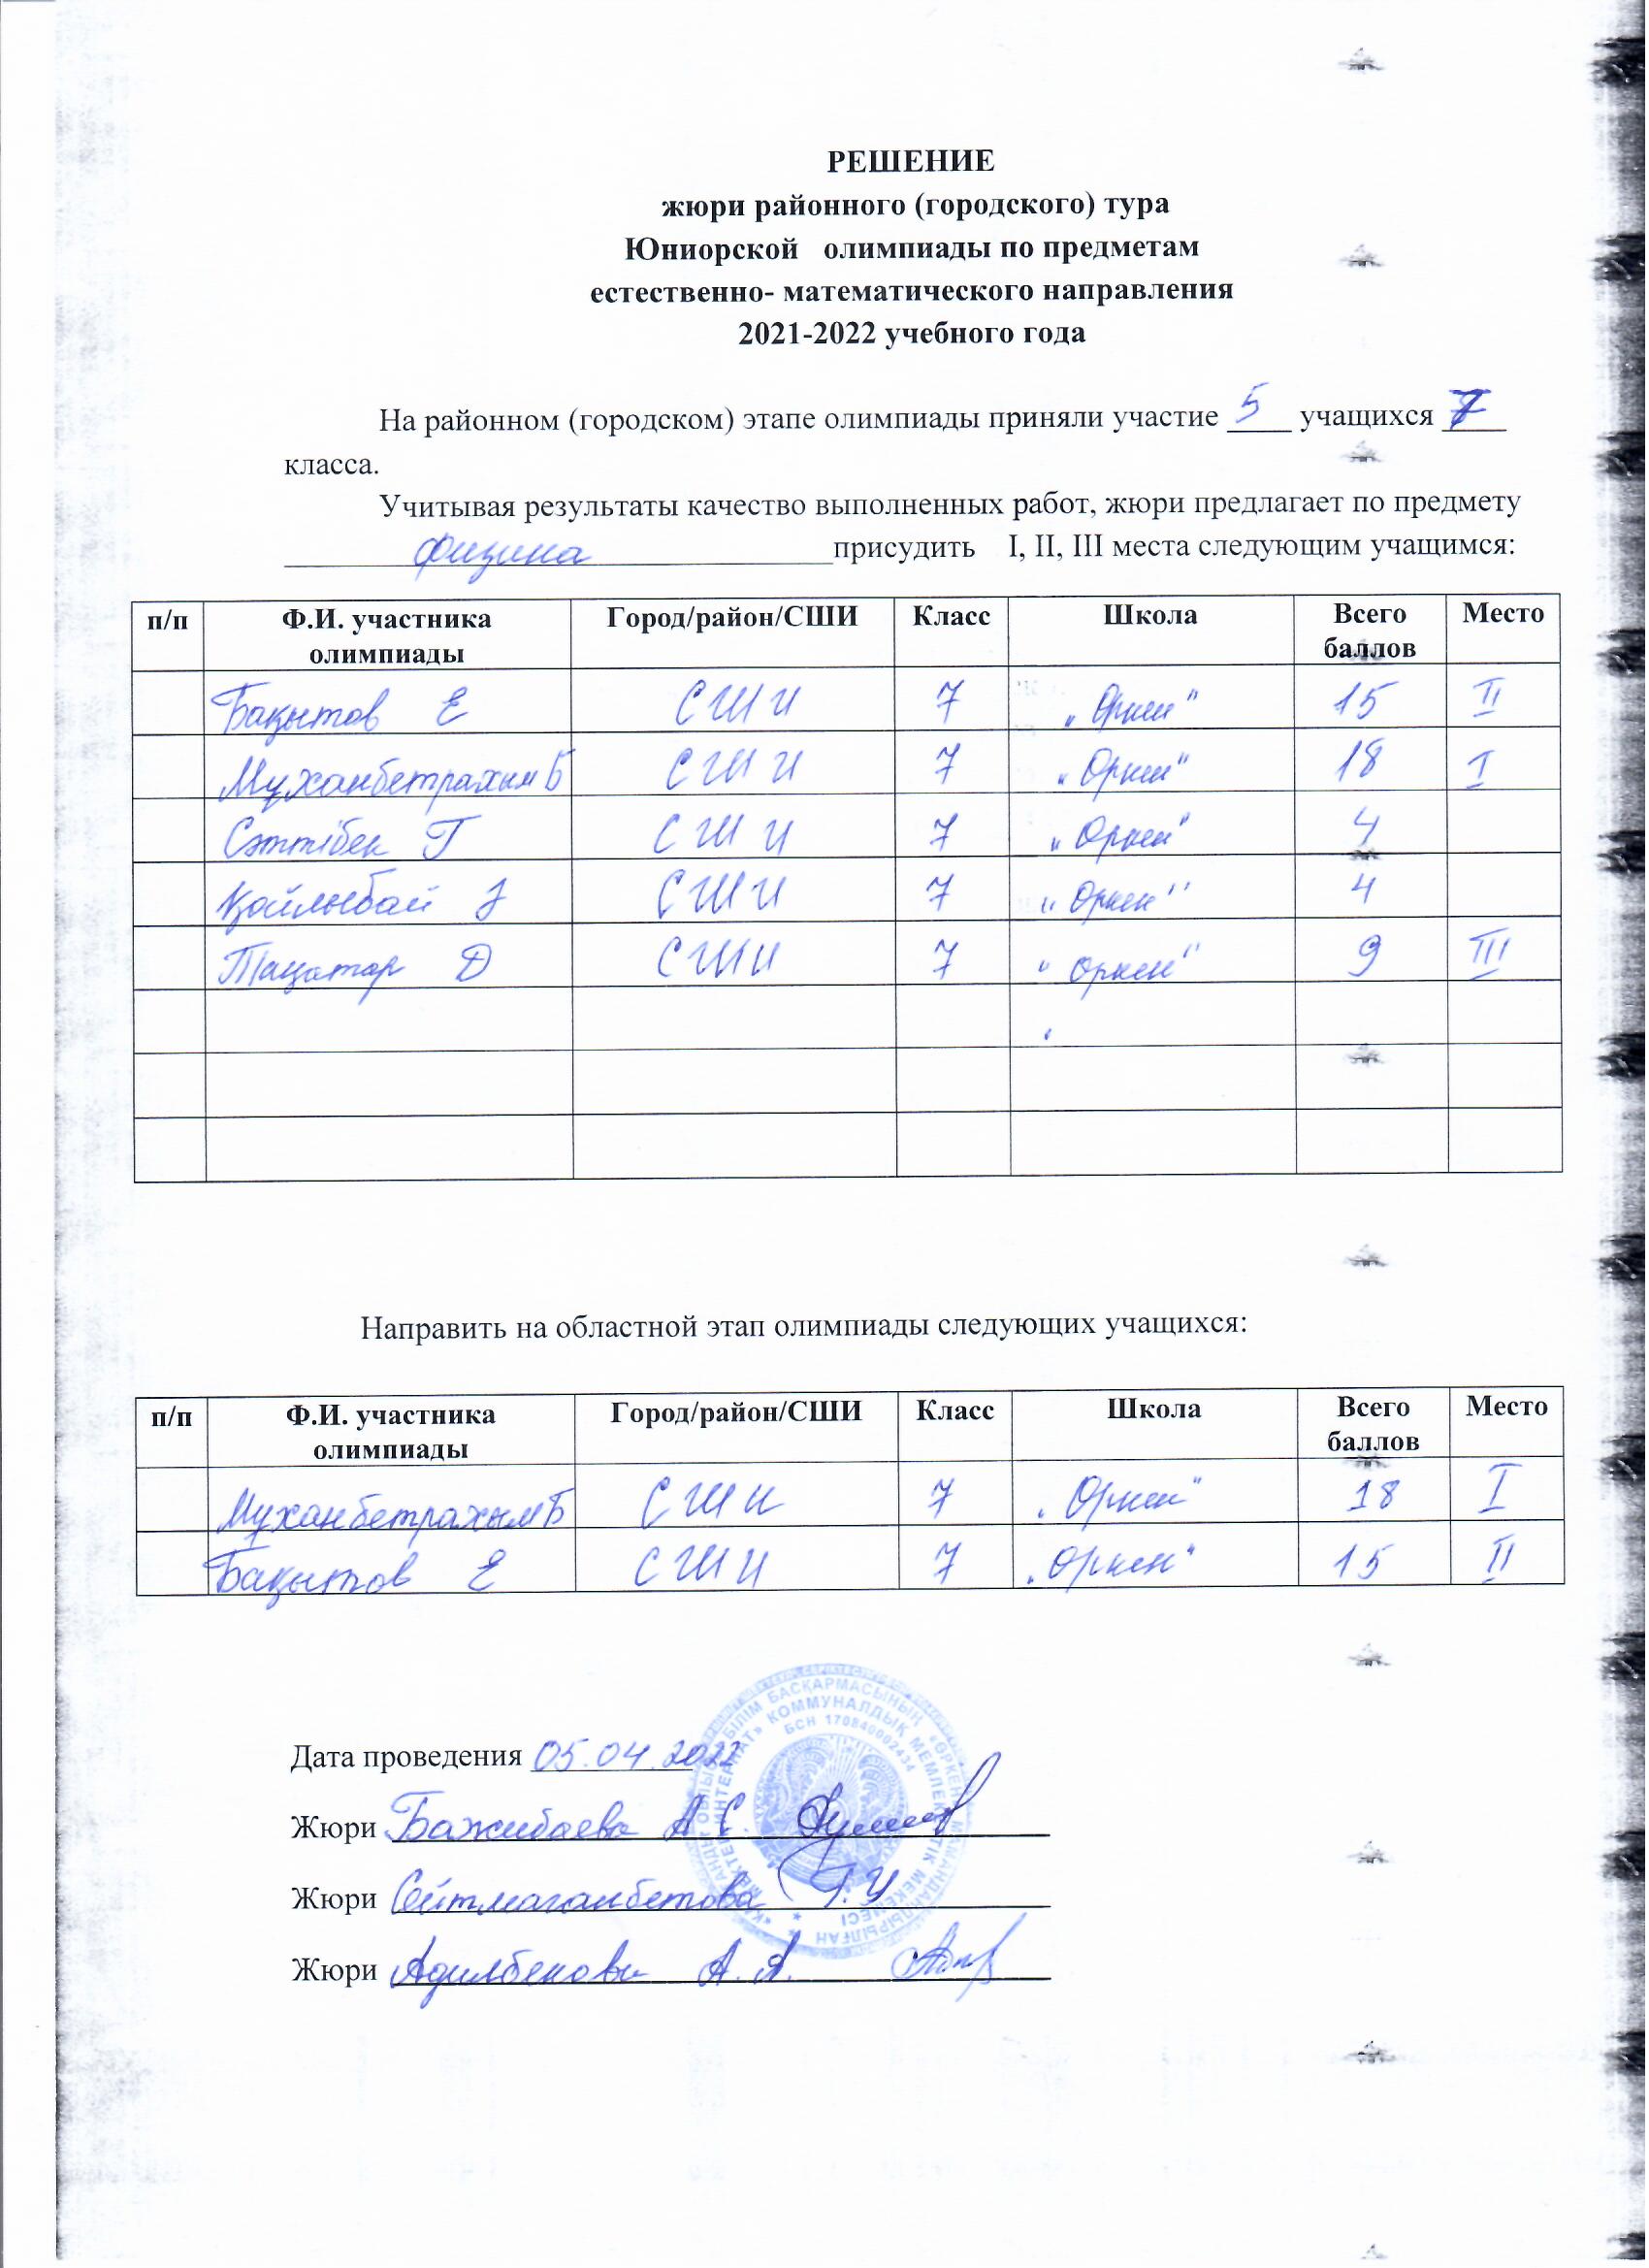 РЕШЕНИЕ
жюри районного (городского) тура
Юниорской олимпиады по предметам
естественно- математического направления
2021-2022 учебного года
На районном (городском) этапе олимпиады приняли участие 5 учащихся 7
класса.
Учитывая результаты качество выполненных работ, жюри предлагает по предмету
физика присудить I, II, III места следующим учащимся:
п/п Ф.И. участника олимпиады Город/район/СШИ Класс Школа Всего баллов Место
Бақытов Е СШИ 7 "Өркен" 15 II
Мұханбетрахым Б СШИ 7 "Өркен" 18 I
Сәттібек Г СШИ 7 "Өркен" 4
Қойлыбай СШИ 7 "Өркен" 4
Таңатар Д СШИ 7 "Өркен" 9 III
Направить на областной этап олимпиады следующих учащихся:
п/п Ф.И. участника олимпиады Город/район/СШИ Класс Школа Всего баллов Место
Мұханбетрахым Б СШИ 7 "Өркен" 18 I
Бақытов Е СШИ 7 "Өркен" 15 II
Дата проведения 05.04.2022
Жюри Бажибаева А С
Жюри Сейтмаганбетова Г.У
Жюри Адилбекова А.А.
БІЛІМ БАСҚАРМАСЫНЫҢ «ӨРКЕН» МАМАНДАНДЫРЫЛҒАН
ИНТЕРНАТ» КОММУНАЛДЫҚ МЕМЛЕКЕТТІК МЕКЕМЕСІ
БСН 170840002434